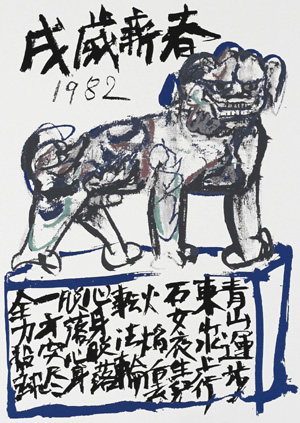 戌歳新春
1982
青山運歩
東山水上行
石女夜生児
火焔裏
転法輪
心身脱落
脱落心身
一方究尽
全力投球